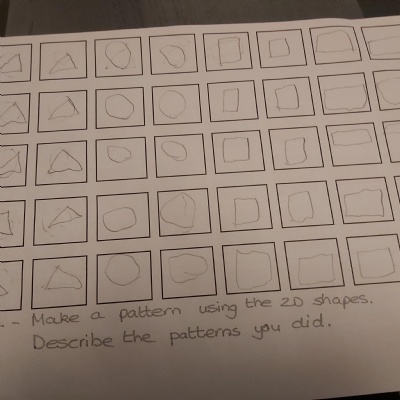 .- Make a pattern using the 2D shapes.
Describe the patterns you did.